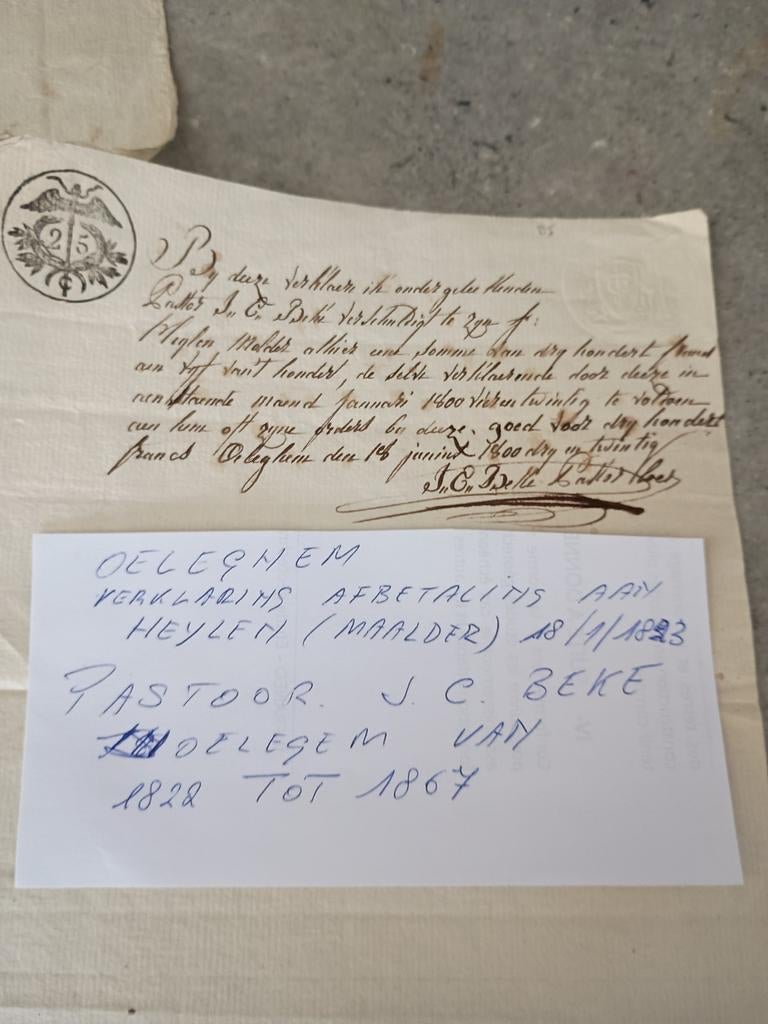 25
By deeze verklaere ik ondergeteekenden
Pastor J. C. Beke verschuldigt te zyn
Heylen Molder alhier eene somme van dry hondert francs
aen vyf hondert, de selve verklaerende door deeze in
aenstaende maend Januari 1800 vier en twintig te voldoen
aen hem oft zyne orders by deeze. goed voor dry hondert
francs Oeleghem den 18 1800 dry en twintig
J. C. Beke Pastor
OELEGHEM
VERKLARING AFBETALING AAN
HEYLEN (MAALDER) 18/1/1823
PASTOOR. J. C. BEKE
OELEGEM VAN
1822 TOT 1867